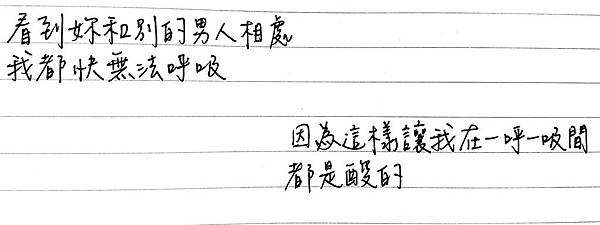 看到妳和別的男人相處
我都快無法呼吸
因為這樣讓我在一呼一吸間
都是酸的